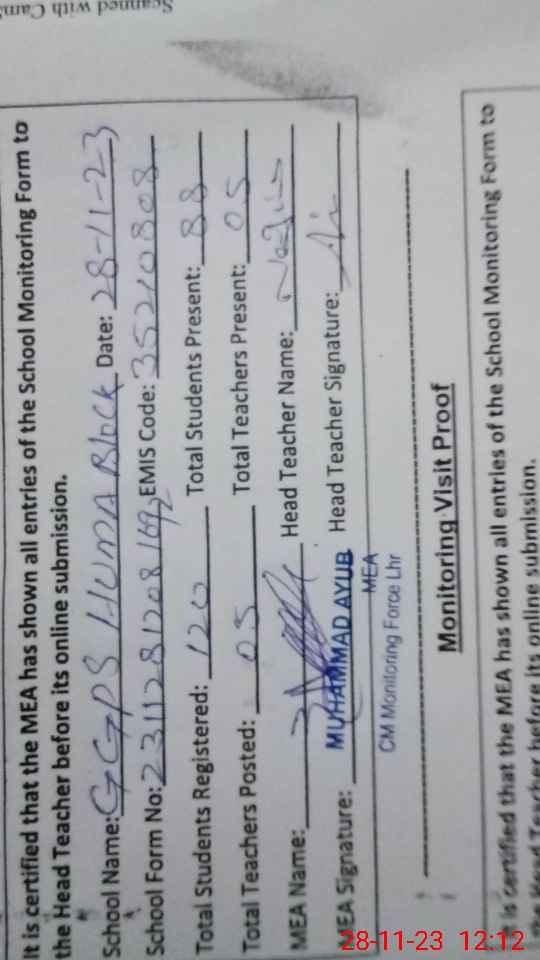 Scanned with Cam
It is certified that the MEA has shown all entries of the School Monitoring Form to
the Head Teacher before its online submission.
School Name: GGPS HUMA Block Date: 28-11-23
School Form No: EMIS Code: 35210808
Total Students Registered: 120 Total Students Present: 88
Total Teachers Posted: 05 Total Teachers Present: 05
MEA Name: Head Teacher Name:
MEA Signature: Head Teacher Signature:
MUHAMMAD AYUB
MEA
CM Monitoring Force Lhr
Monitoring Visit Proof
It is certified that the MEA has shown all entries of the School Monitoring Form to
the Head Teacher before its online submission.
28-11-23 12:12